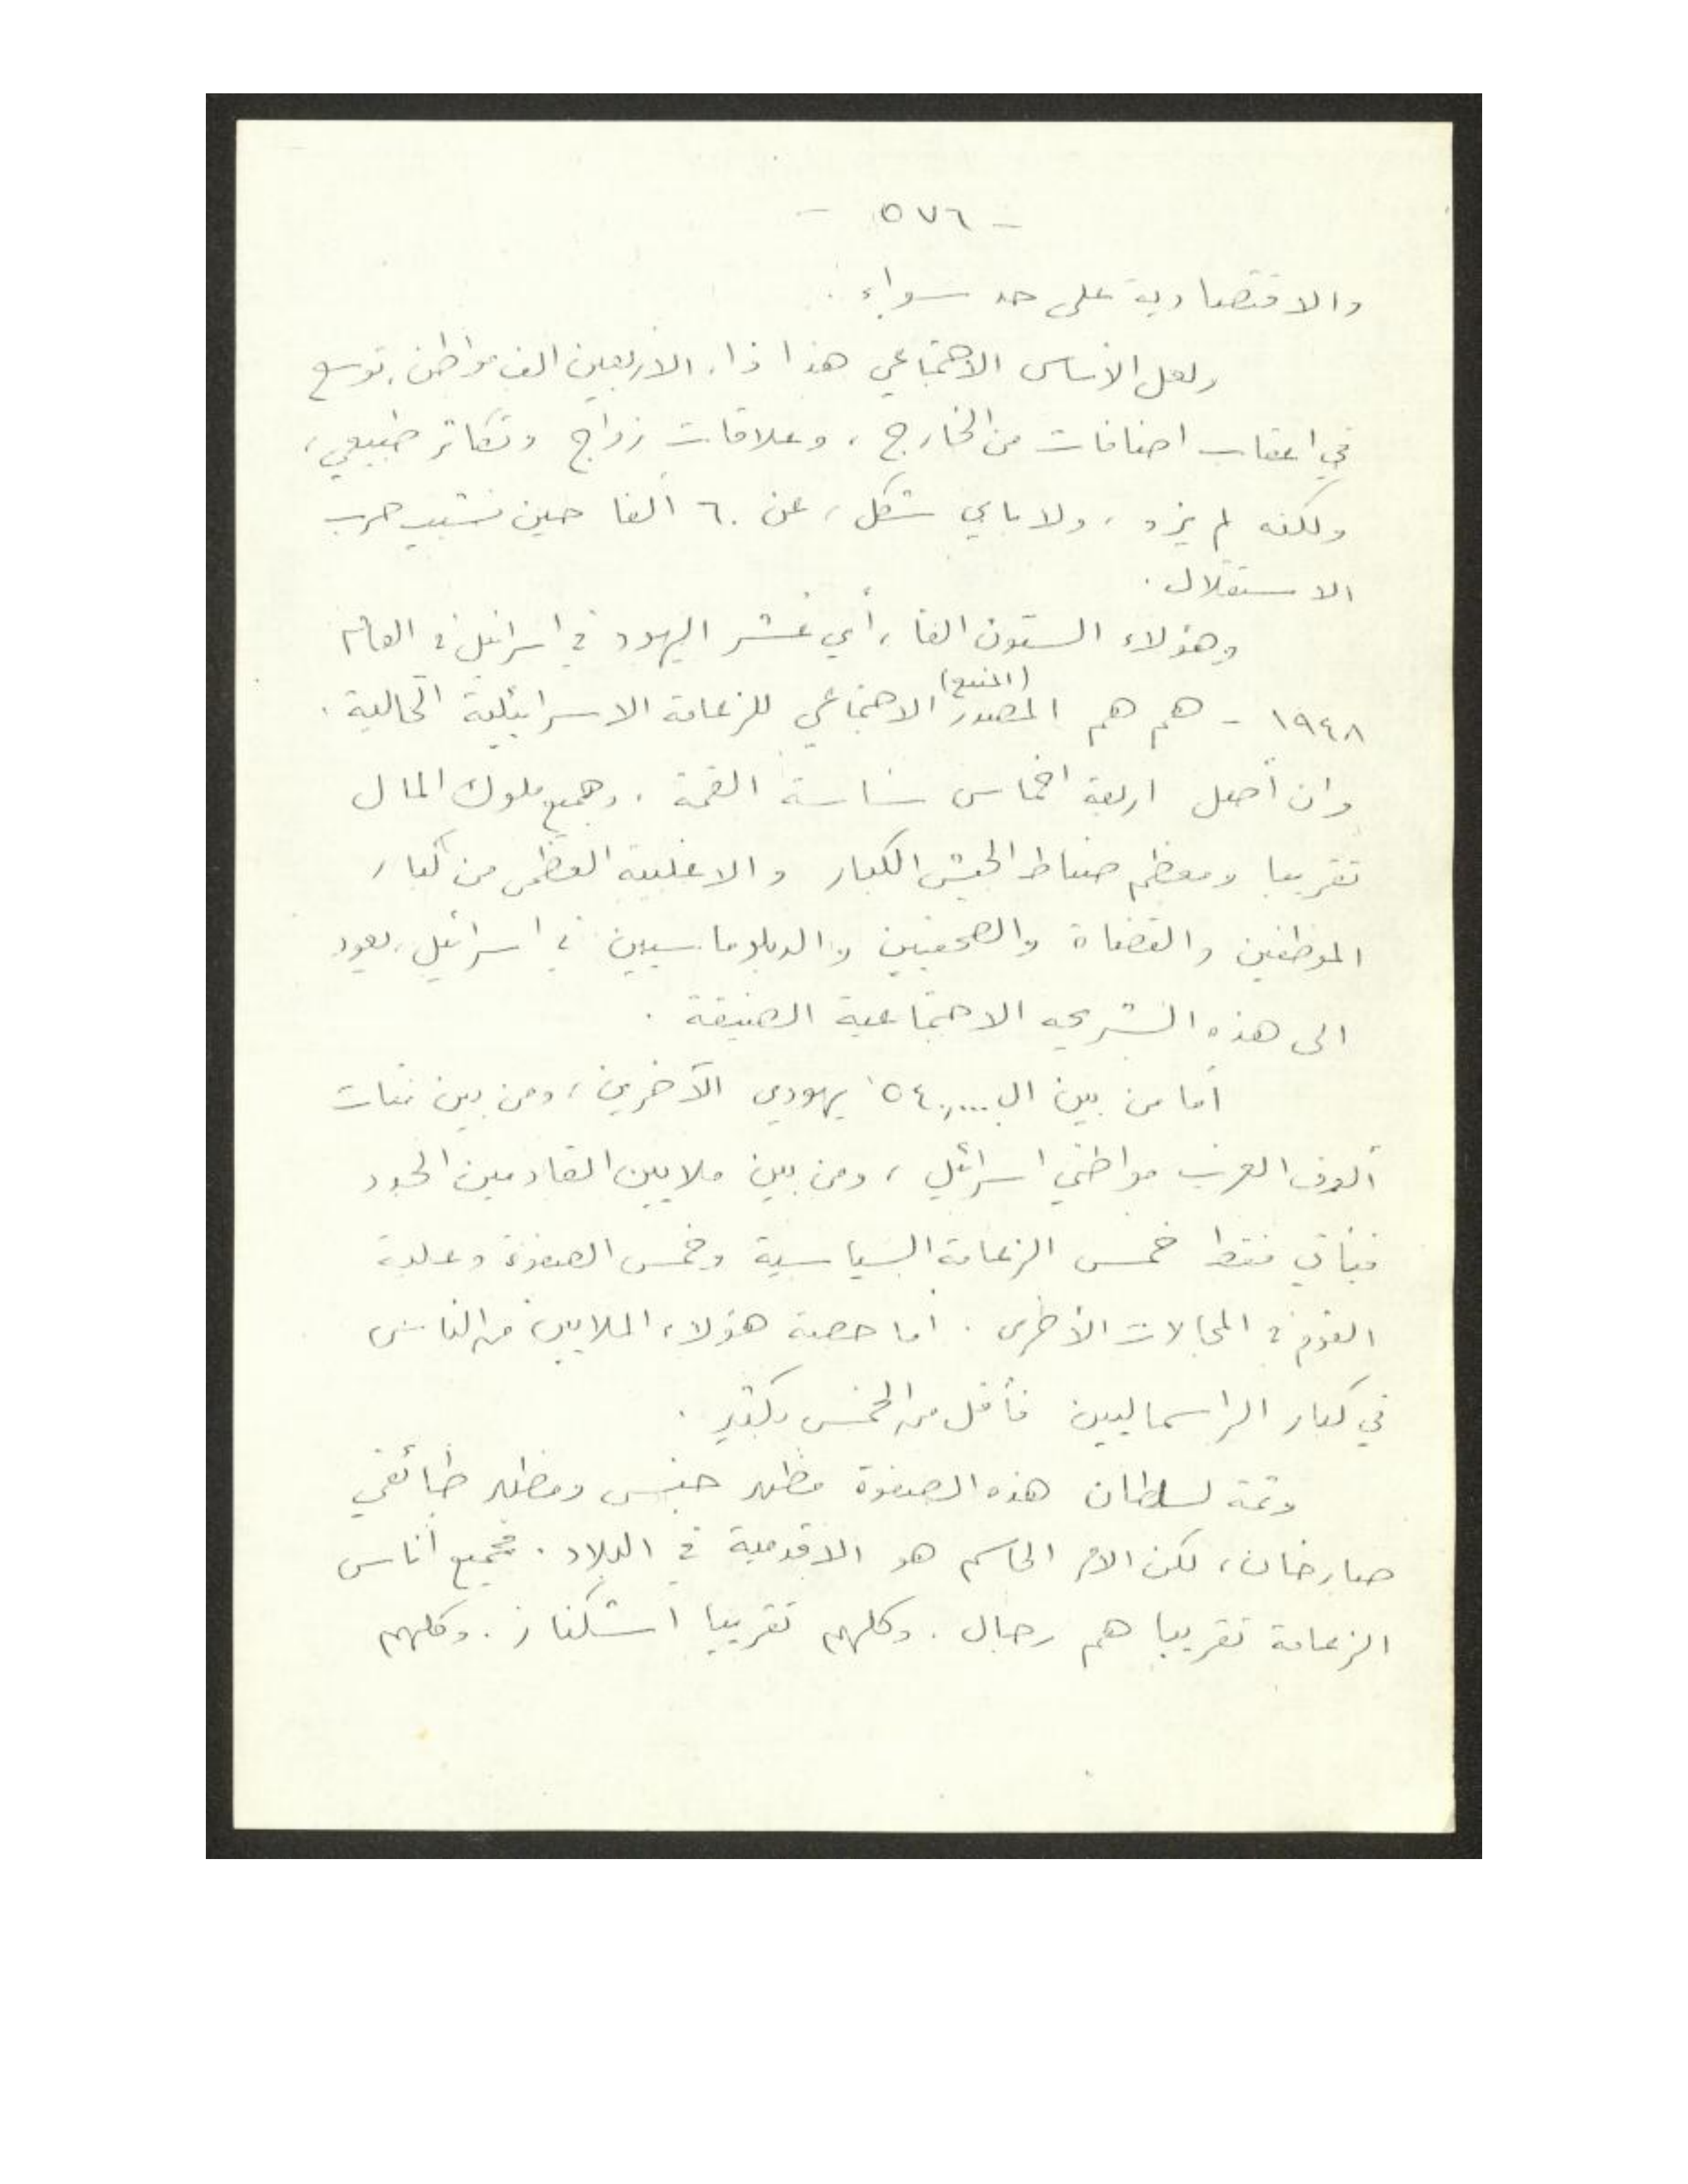 - ٥٧٦ -
والاقتصادية على حد سواء .
ولعل الاساس الاجتماعي هذا ذا، الاربعين الف مواطن، توسع
في اعقاب اضافات من الخارج ، وعلاقات زواج وتكاثر طبيعي ،
ولكنه لم يزد ، ولا باي شكل ، عن ٦٠ ألفا حين نشبت حرب
الاستقلال .
وهؤلاء الستون الفا ، أي عُشر اليهود في اسرائيل في العام
(المنبع)
١٩٤٨ - هم هم المصدر الاجتماعي للزعامة الاسرائيلية الحالية .
وان أصل اربعة اخماس ساسة القمة . وجميع ملوك المال
تقريبا ومعظم ضباط الجيش الكبار والاغلبية العظمى من كبار
الموظفين والقضاة والصحفيين والدبلوماسيين في اسرائيل، يعود
الى هذه الشريحه الاجتماعية الضيقة .
أما من بين الـ ٥٤٠,٠٠٠ يهودي الآخرين ، ومن بين مئات
ألوف العرب مواطني اسرائيل ، ومن بين ملايين القادمين الجدد
فيأتي فقط خمس الزعامة السياسية وخمس الصفوة وعلية
القوم في المجالات الأخرى . أما حصة هؤلاء الملايين من الناس
في كبار الراسماليين فأقل من الخمس بكثير .
وثمة لسلطان هذه الصفوة مظهر جنسي ومظهر طائفي
صارخان ، لكن الامر الحاسم هو الاقدمية في البلاد . فجميع أناس
الزعامة تقريبا هم رجال . وكلهم تقريبا اشكناز . وكلهم